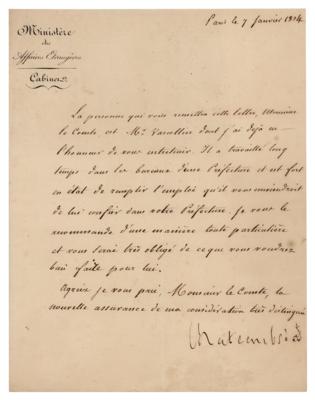 Ministère
des
Affaires Etrangères
Cabinet
Paris le 7 Janvier 1824.
La personne qui vous remettra cette lettre, Monsieur
le Comte, est Mr. dont j'ai déjà eu
l'honneur de vous entretenir. Il a travaillé long
temps dans les bureaux d'une Préfecture et est fort
en état de remplir l'emploi qu'il vous conviendroit
de lui confier dans votre Préfecture. Je vous le
recommande d'une manière toute particulière
et vous serai très obligé de ce que vous voudrez
bien faire pour lui.
Agréez je vous prie, Monsieur le Comte, la
nouvelle assurance de ma considération très distinguée
Chateaubriand